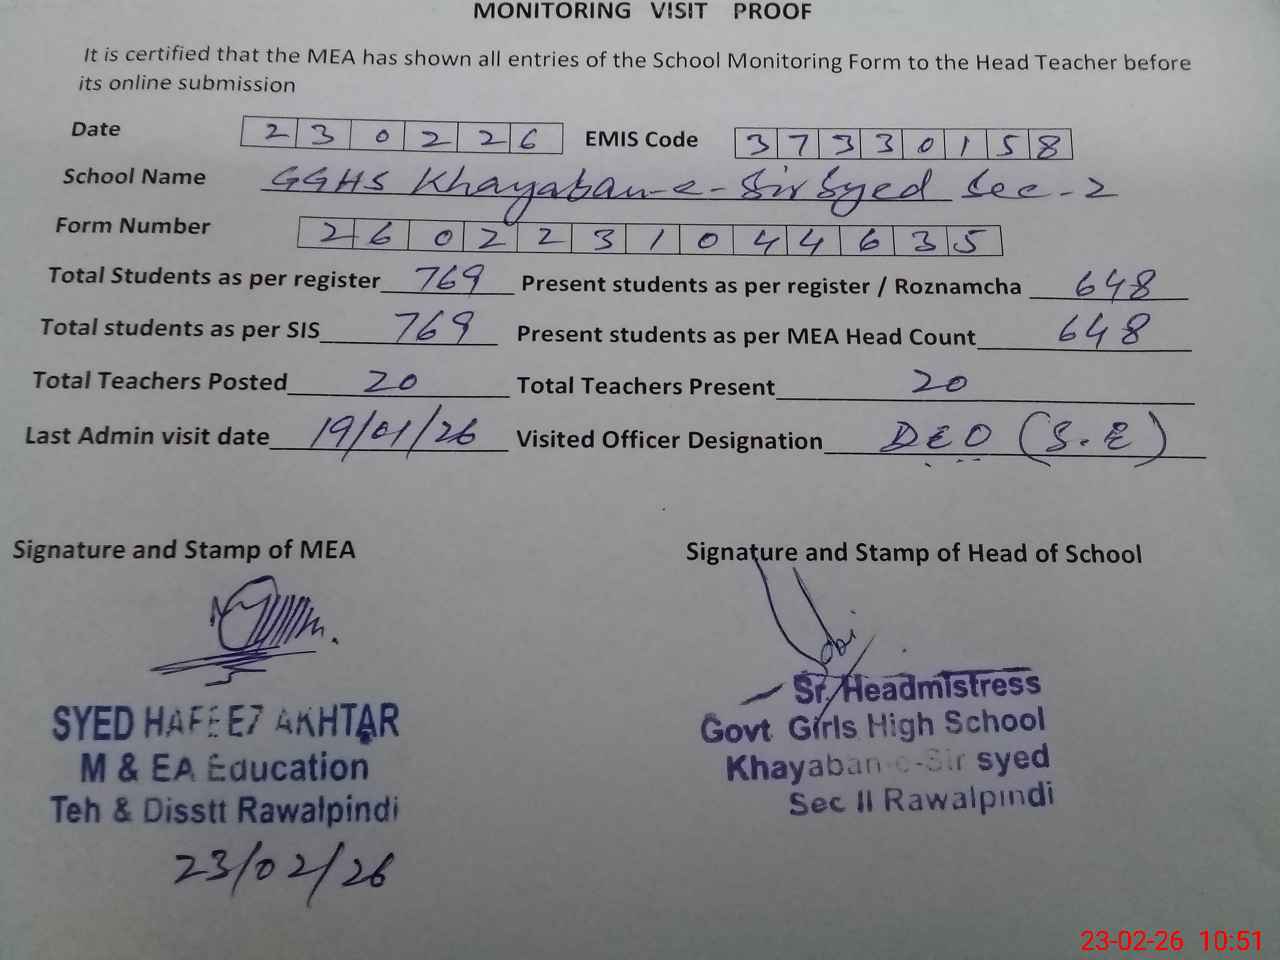 MONITORING VISIT PROOF
It is certified that the MEA has shown all entries of the School Monitoring Form to the Head Teacher before
its online submission
Date 2 3 0 2 2 6 EMIS Code 3 7 3 3 0 1 5 8
School Name GGHS Khayaban-e-Sir Syed Sec-2
Form Number 2 6 0 2 2 3 1 0 4 4 6 3 5
Total Students as per register 769 Present students as per register / Roznamcha 648
Total students as per SIS 769 Present students as per MEA Head Count 648
Total Teachers Posted 20 Total Teachers Present 20
Last Admin visit date 19/01/26 Visited Officer Designation DEO (S.E)
Signature and Stamp of MEA Signature and Stamp of Head of School
SYED HAFEEZ AKHTAR
M & EA Education
Teh & Disstt Rawalpindi
23/02/26
Sr. Headmistress
Govt Girls High School
Khayaban-e-Sir syed
Sec II Rawalpindi
23-02-26 10:51